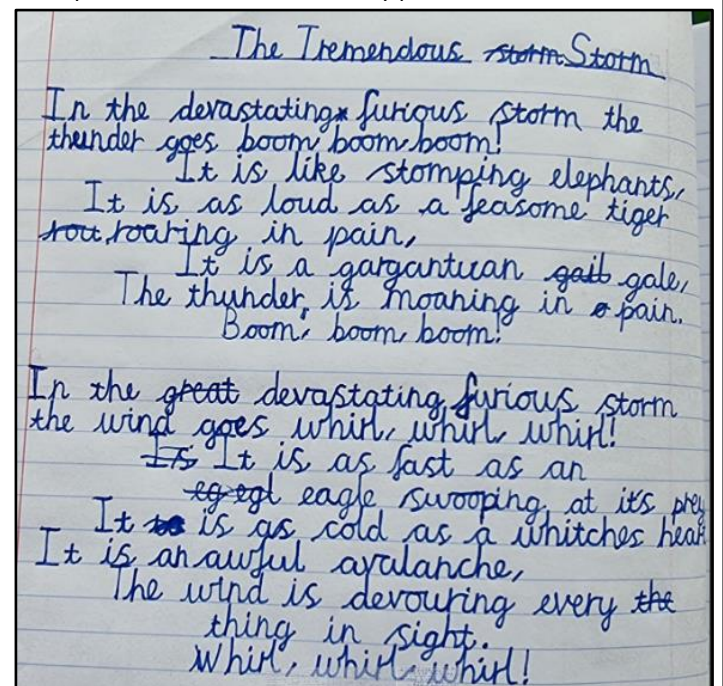 The Tremendous storm Storm
In the devastating furious storm the
thunder goes boom boom boom!
It is like stomping elephants,
It is as loud as a feasome tiger
rou roaring in pain,
It is a gargantuan gail gale,
The thunder is moaning in a pain.
Boom, boom, boom!
In the great devastating furious storm
the wind goes whirl, whirl, whirl!
Is It is as fast as an
eg egl eagle swooping at it's prey
It is as cold as a whitches heart
It is an awful avalanche,
The wind is devouring every the
thing in sight.
Whirl, whirl, whirl!